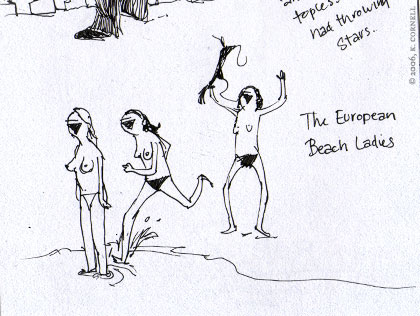 topless..
had throwing
stars..
The European
Beach Ladies
© 2006, K. CORNELL